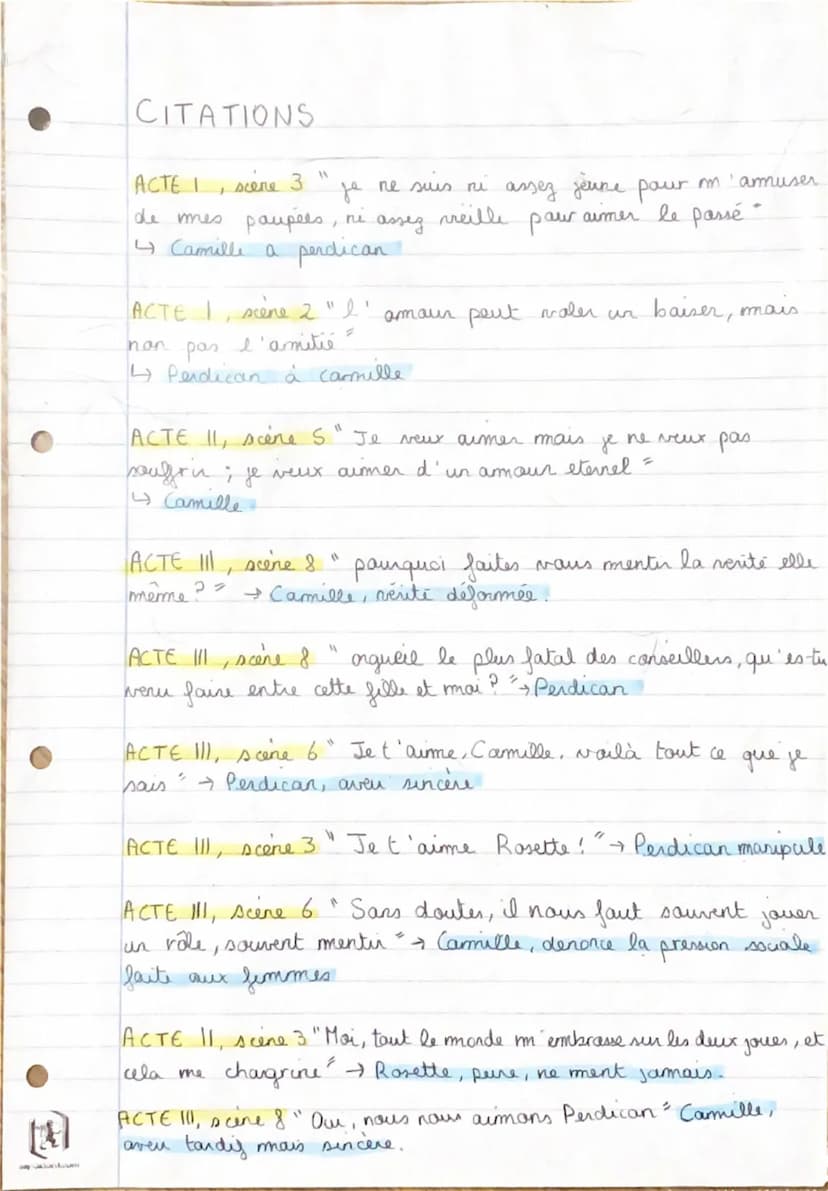 CITATIONS
ACTE I, scène 3 " je ne suis ni assez jeune pour m'amuser
de mes poupées, ni assez vieille pour aimer le passé "
↳ Camille a perdican
ACTE I, scène 2 " l'amour peut voler un baiser, mais
non pas l'amitié "
↳ Perdican à camille
ACTE II, scène 5 " Je veux aimer mais je ne veux pas
souffrir ; je veux aimer d'un amour eternel "
↳ Camille
ACTE III, scène 8 " pourquoi faites vous mentir la verité elle
même ? " → Camille, vérité déformée.
ACTE III, scène 8 " orgueil le plus fatal des conseillers, qu'es-tu
venu faire entre cette fille et moi ? " → Perdican
ACTE III, scène 6 " Je t'aime, Camille, voilà tout ce que je
sais " → Perdican, aveu sincère
ACTE III, scène 3 " Je t'aime Rosette ! " → Perdican manipule
ACTE III, scène 6 " Sans doutes, il nous faut souvent jouer
un rôle, souvent mentir " → Camille, denonce la pression sociale
faite aux femmes
ACTE II, scène 3 " Moi, tout le monde m'embrasse sur les deux joues, et
cela me chagrine " → Rosette, pure, ne ment jamais.
ACTE III, scène 8 " Oui, nous nous aimons Perdican " Camille,
aveu tardif mais sincère.